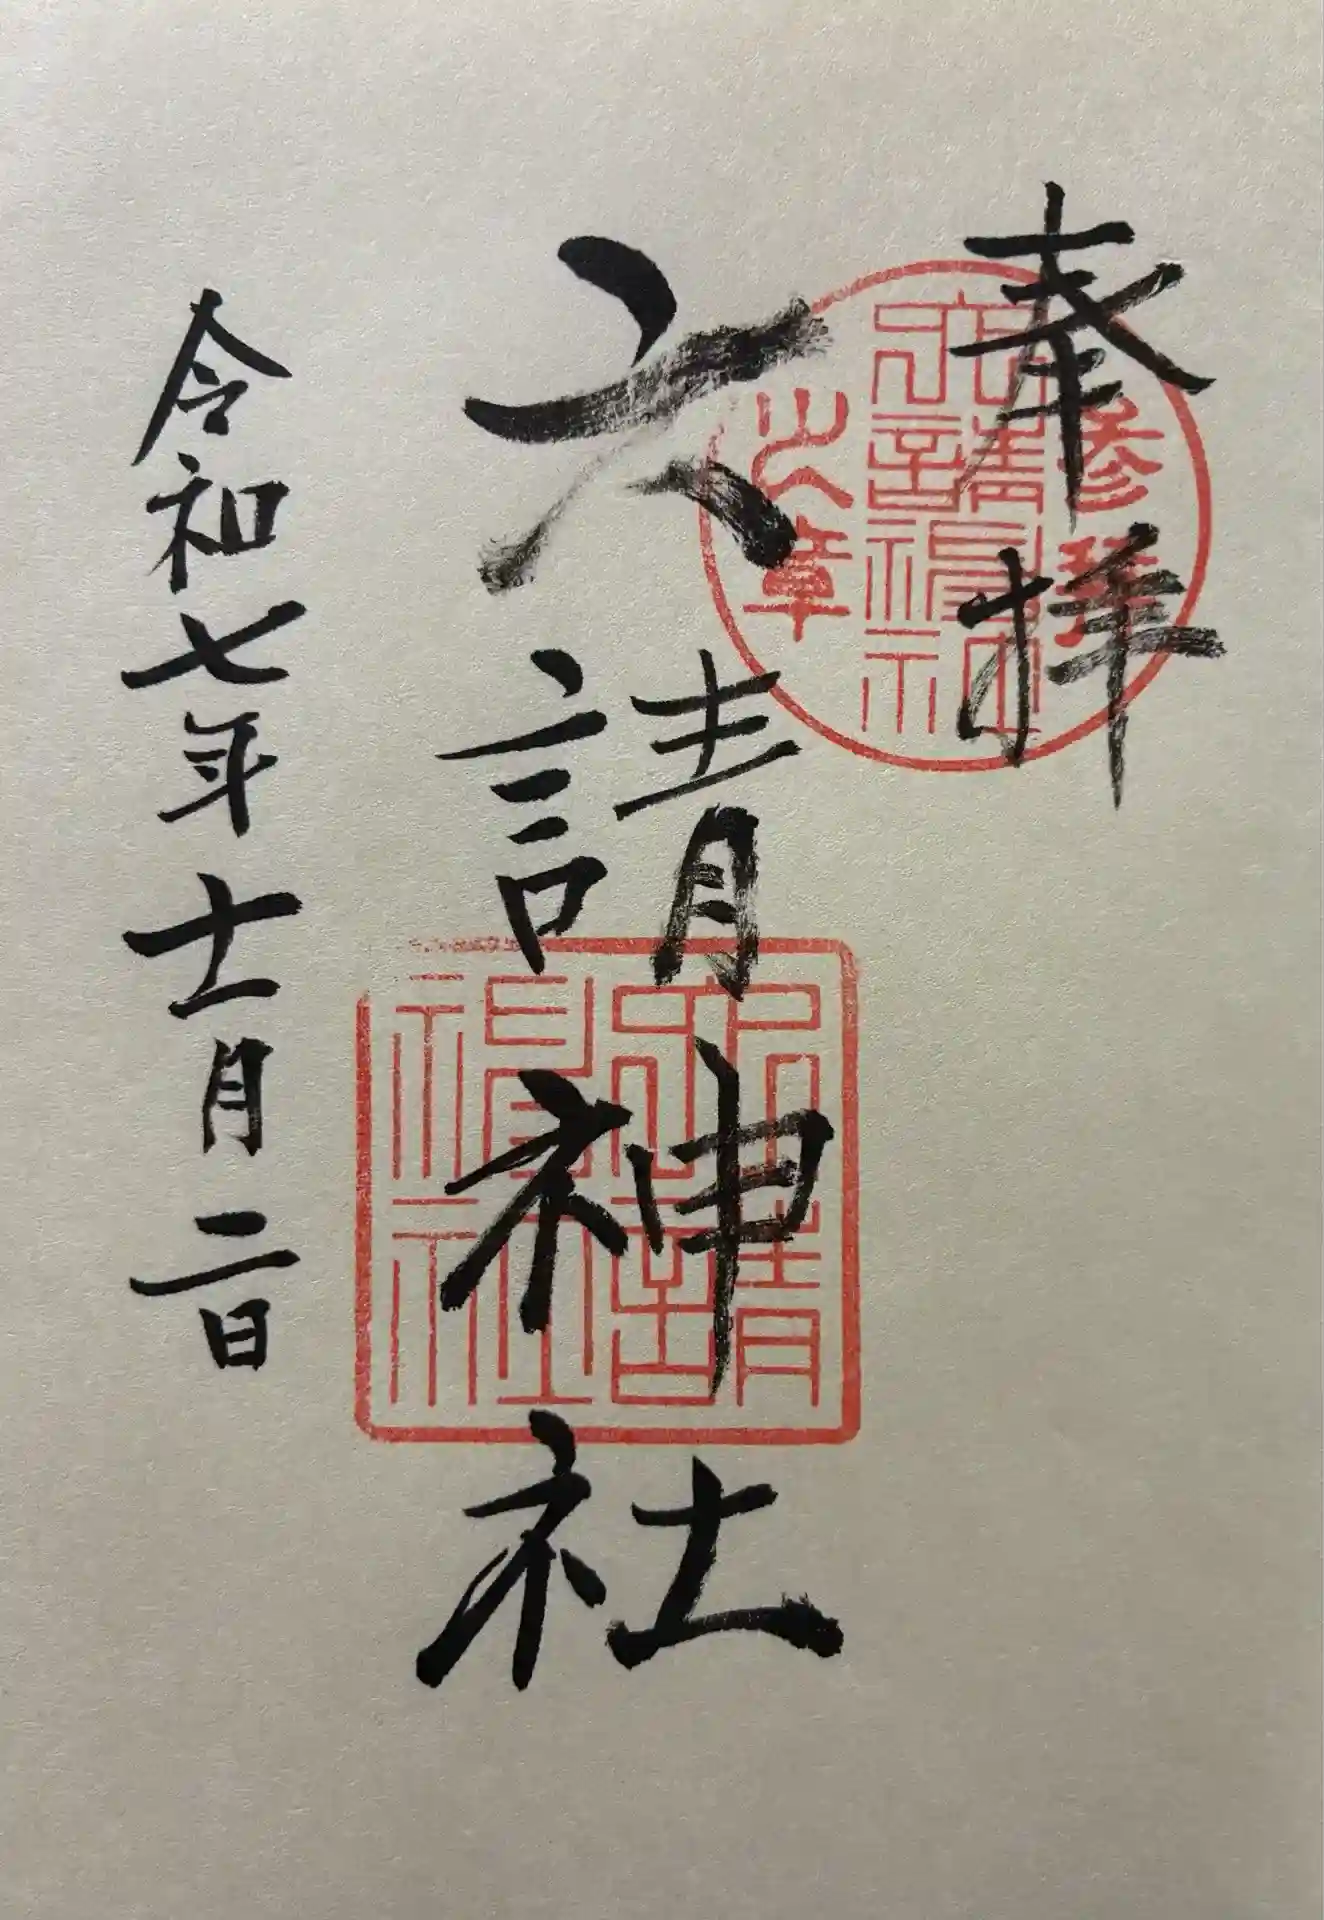 奉拝
参拝
六請神社
之章
六請神社
六請神社
令和七年十一月二日